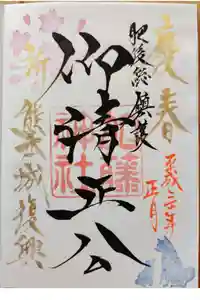 慶春
肥後総鎮護
平成 年
正月
仰清正公
加藤
神社
祈 熊本城復興